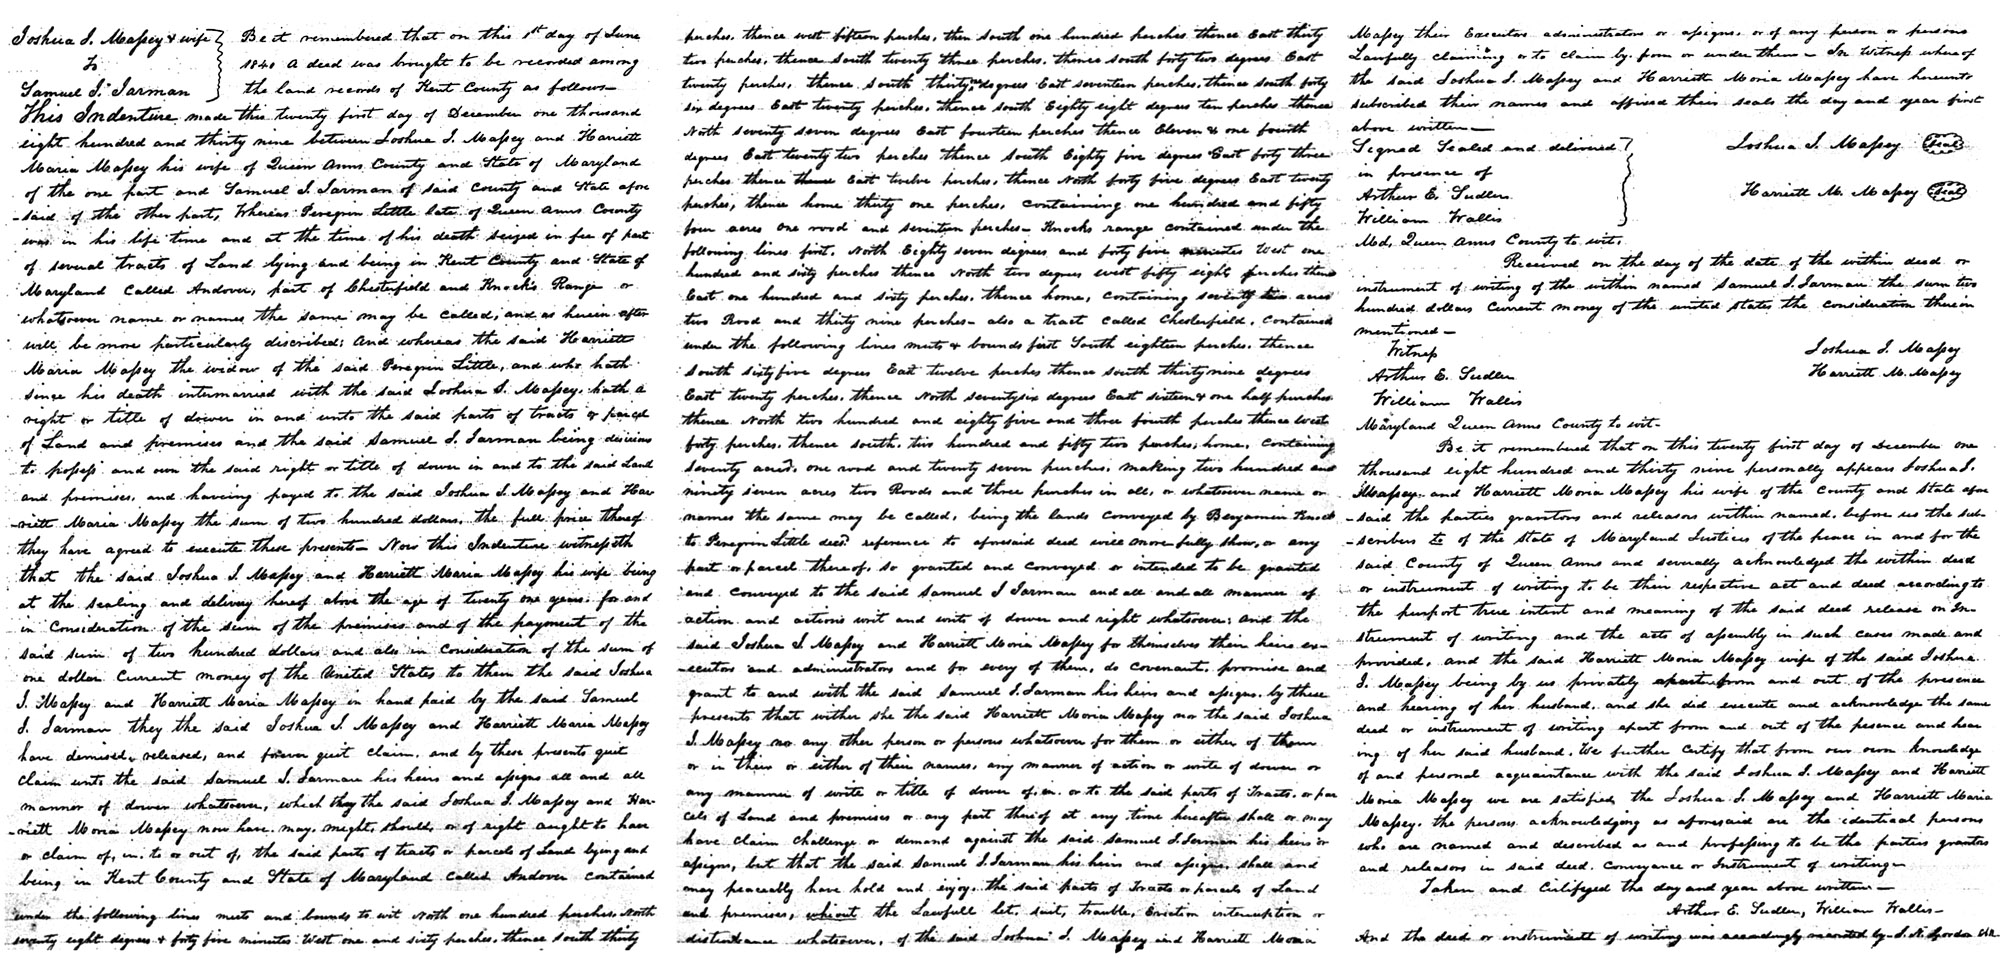 Joshua I. Massey & wife
To
Samuel I. Jarman
Be it remembered that on this 1st day of June
1840 A deed was brought to be recorded among
the land records of Kent County as follows—
This Indenture made this twenty first day of December one thousand
eight hundred and thirty nine between Joshua I. Massey and Harriett
Maria Massey his wife of Queen Anns County and State of Maryland
of the one part and Samuel I. Jarman of said County and State afore
-said of the other part, Whereas Peregrin Little late of Queen Anns County
was in his life time and at the time of his death seized in fee of part
of several tracts of Land lying and being in Kent County and State of
Maryland Called Andover, part of Chesterfield and Knock's Range or
whatsoever name or names the same may be called, and as herein after
will be more particularly described: And whereas the said Harriett
Maria Massey the widow of the said Peregrin Little, and who hath
since his death intermarried with the said Joshua I. Massey, hath a
right or title of dower in and unto the said parts of tracts or parcel
of Land and premises and the said Samuel I. Jarman being desirous
to possess and own the said right or title of dower in and to the said Land
and premises, and haveing payed to the said Joshua I. Massey and Har
-riett Maria Massey the sum of two hundred dollars, the full price thereof
they have agreed to execute these presents— Now this Indenture witnesseth
that the said Joshua I. Massey and Harriett Maria Massey his wife being
at the sealing and delivery hereof above the age of twenty one years, for and
in Consideration of the sum of the premises and of the payment of the
said sum of two hundred dollars and also in Consideration of the sum of
one dollar Current money of the United States to them the said Joshua
I. Massey and Harriett Maria Massey in hand paid by the said Samuel
I. Jarman they the said Joshua I. Massey and Harriett Maria Massey
have demised, released, and forever quit claim, and by these presents quit
Claim unto the said Samuel I. Jarman his heirs and assigns all and all
manner of dower whatsoever, which they the said Joshua I. Massey and Har-
-riett Moria Massey now have, may, might, should, or of right aught to have
or claim of, in, to or out of, the said parts of tracts or parcels of Land lying and
being in Kent County and State of Maryland Called Andover Contained
under the following lines meets and bounds to wit North one hundred perches, North
seventy eight degrees & forty five minutes West one and sixty perches, thence South thirty
perches, thence west fifteen perches, then South one hundred perches thence East thirty
two perches, thence South twenty three perches, thence south forty two degrees East
twenty perches, thence South thirty one degrees East seventeen perches, thence south forty
six degrees East twenty perches, thence South Eighty eight degrees ten perches thence
North seventy seven degrees East fourteen perches thence Eleven & one fourth
degrees East twenty two perches thence South Eighty five degrees East forty three
perches thence East twelve perches, thence North forty five degrees East twenty
perches, thence home thirty one perches, containing one hundred and fifty
four acres one rood and seventeen perches— Knocks range contained under the
following lines first, North Eighty seven degrees and forty five minutes West one
hundred and sixty perches thence North two degrees west fifty eight perches then
East one hundred and sixty perches, thence home, containing seventy two acres
two Rood and thirty nine perches— also a tract called Chesterfield, Contained
under the following lines mets & bounds first South eighteen perches, thence
South sixty five degrees East twelve perches thence south thirty nine degrees
East twenty perches, thence North seventy six degrees East sixteen & one half perches
thence North two hundred and eighty five and three fourth perches thence West
forty perches, thence south, two hundred and fifty two perches, home, Containing
seventy acres, one rood and twenty seven perches, making two hundred and
ninety seven acres two Roods and three perches in all, or whatsoever name or
names the same may be called, being the lands conveyed by Benjamin Knock
to Peregrin Little decd. reference to aforesaid deed will more fully show, or any
part or parcel thereof, so granted and conveyed or intended to be granted
and conveyed to the said Samuel I Jarman and all and all manner of
action and actions writ and writs of dower and right whatsoever: and the
said Joshua I Massey and Harriett Moria Massey for themselves their heirs ex-
-ecutors and administrators and for every of them, do Covenant, promise and
grant to and with the said Samuel I. Jarman his heirs and assigns, by these
presents that wither she the said Harriett Moria Massey nor the said Joshua
I. Massey nor any other person or persons whatsoever for them or either of them
or in their or either of their names, any manner of action or write of dower or
any manner of write or title of dower of, in, or to the said parts of Tracts, or par
cels of Land and premises or any part thereof at any time hereafter shall or may
have claim challenge or demand against the said Samuel I. Jarman his heirs or
assigns, but that the said Samuel I. Jarman his heirs and assigns, shall and
may peaceably have hold and enjoy, the said parts of Tracts or parcels of Land
and premises, whiout the Lawfull let, suit, trouble, Eviction interruption or
disturbance whatsoever, of the said Joshua I. Massey and Harriett Moria
Massey their Executors administrators or assigns, or of any person or persons
Lawfully claiming or to claim by, from or under them— In Witness where of
the said Joshua I. Massey and Harriett Moria Massey have hereunto
subscribed their names and affixed their seals the day and year first
above written—
Signed Sealed and delivered
in presence of
Arthur E. Sudler
William Wallis
Joshua I. Massey (Seal)
Harriett M. Massey (Seal)
Md, Queen Anns County to wit.
Received on the day of the date of the within deed or
instrument of writing of the within named Samuel I. Jarman the sum two
hundred dollars Current money of the united States the consideration therein
mentioned—
Witness
Arthur E. Sudler
William Wallis
Joshua I. Massey
Harriett M. Massey
Maryland Queen Anns County to wit-
Be it remembered that on this twenty first day of December one
thousand eight hundred and thirty nine personally appears Joshua I.
Massey and Harriett Moria Massey his wife of the County and State afore
-said the parties grantors and releasors within named, before us the sub-
-scribers to of the State of Maryland Justices of the peace in and for the
said County of Queen Anns and severally acknowledged the within deed
or instrument of writing to be their respective act and deed according to
the purport true intent and meaning of the said deed release or In-
strument of writing and the acts of assembly in such cases made and
provided, and the said Harriett Moria Massey wife of the said Joshua
I. Massey being by us privately apart from and out of the presence
and hearing of her husband, and she did execute and acknowledge the same
deed or instrument of writing apart from and out of the pesence and hear
ing of her said husband, We further Certify that from our own knowledge
of and personal acquaintance with the said Joshua I. Massey and Harriett
Moria Massey we are satisfied, the Joshua I. Massey and Harriett Maria
Massey, the persons acknowledging as aforesaid are the identical persons
who are named and described as and professing to be the parties grantors
and releasors in said deed, Conveyance or Instrument of writing—
Taken and Citifyed the day and year above written—
Arthur E. Sudler, William Wallis—
And the deed or instrument of writing was accordingly recorded by J. N. Gordon Clk